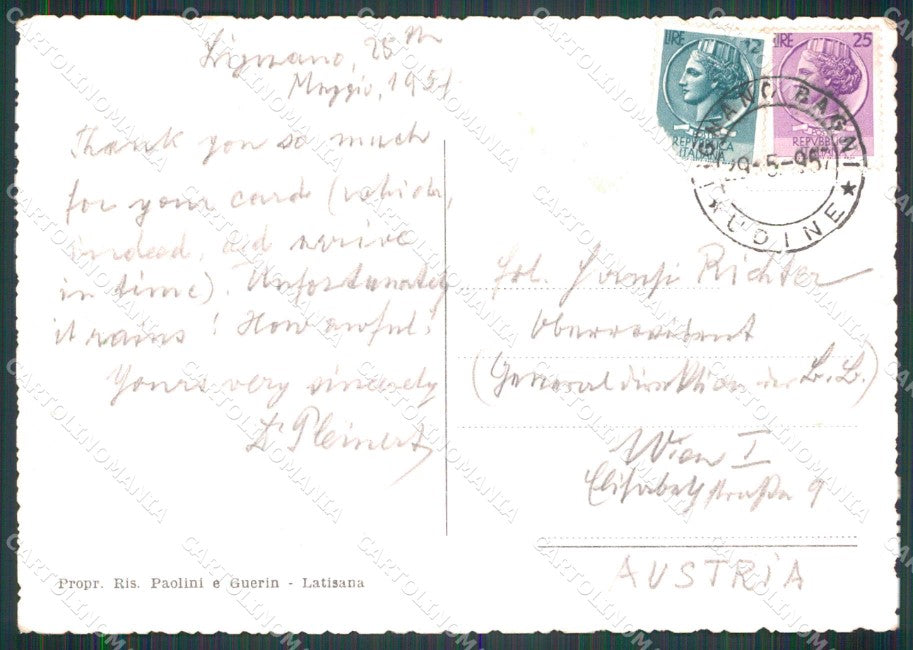 Lignano, 28th
Maggio, 1957
Thank you so much
for your card (which,
indeed, did arrive
in time). Unfortunately
it rains! How awful!
Yours very sincerely
LIRE 12
REPVBBLICA
ITALIANA
LIRE 25
REPVBBLICA
ITALIANA
LIGNANO BAGNI
29-5-957
★ UDINE ★
Richter
Oberrevident
(Generaldirektion der B.B.)
Wien I
Elisabethstraße 9
AUSTRIA
Propr. Ris. Paolini e Guerin - Latisana
CARTOLINOMANIA